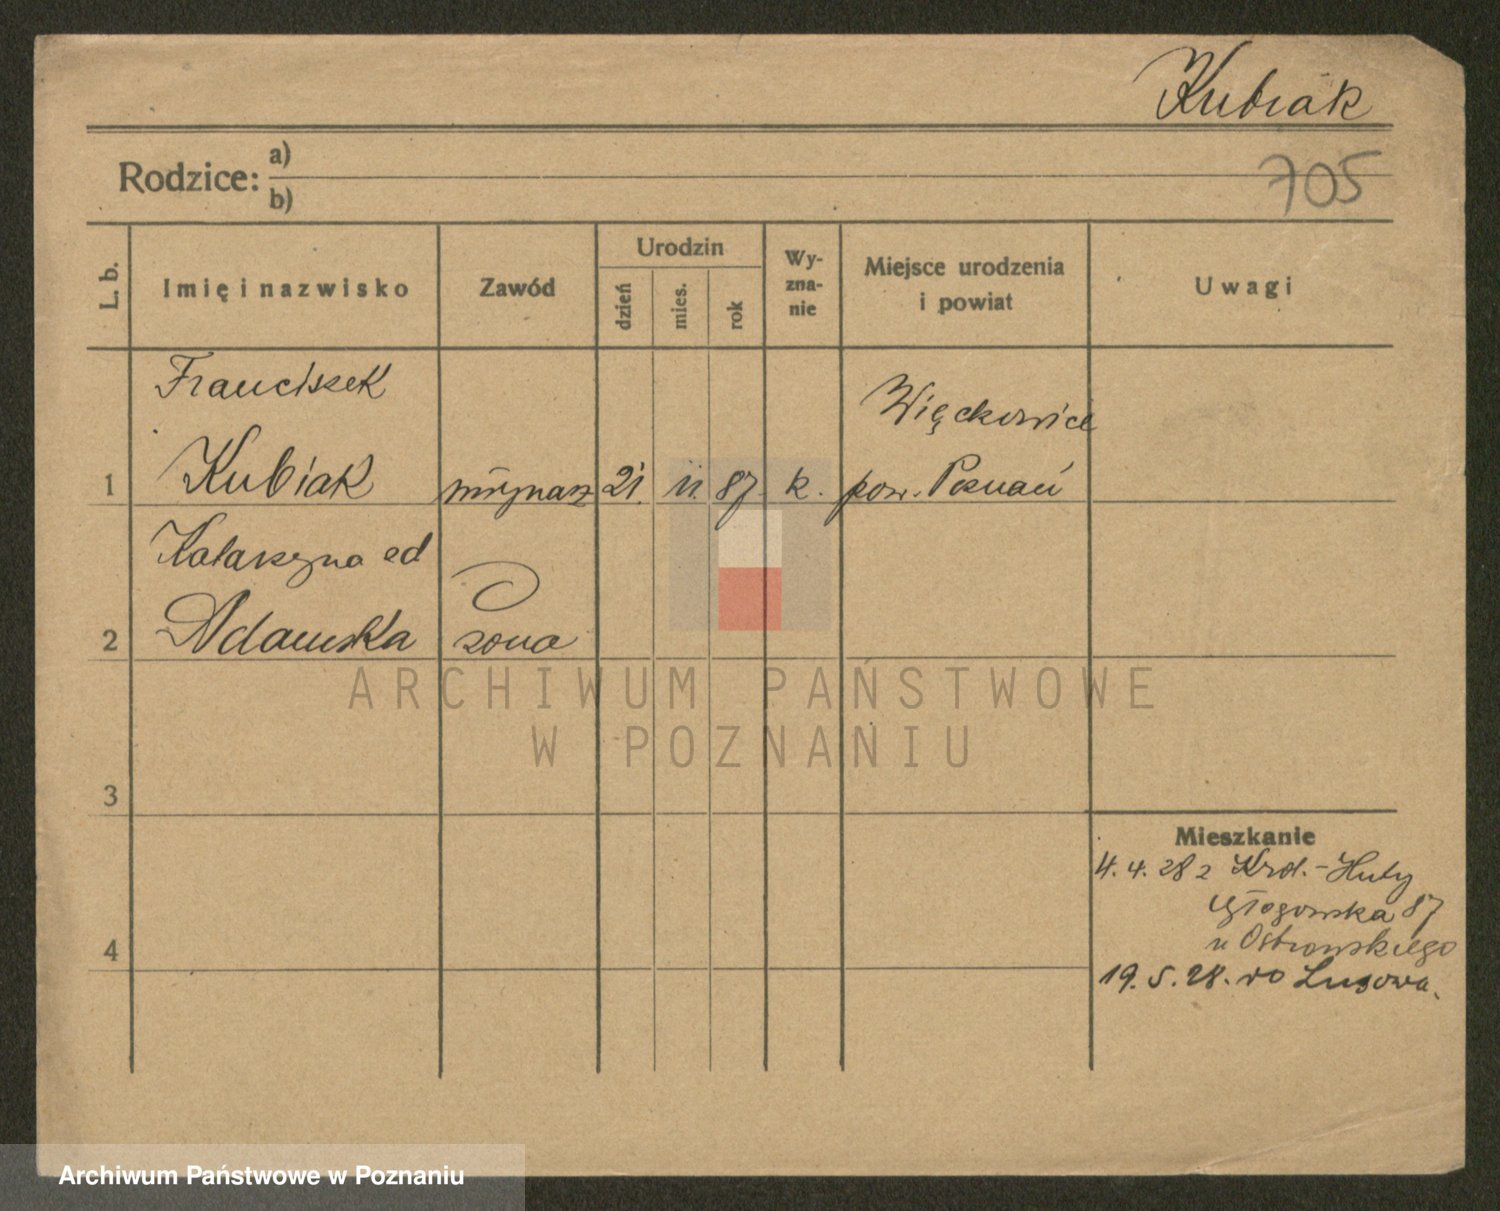 Kubiak
Rodzice: a)
b)
705
L. b.
Imię i nazwisko
Zawód
Urodzin
dzień
mies.
rok
Wy-
zna-
nie
Miejsce urodzenia
i powiat
Uwagi
Franciszek
Więckowice
1 Kubiak młynarz 21. 11. 87. k. pow. Poznań
Katarzyna
2 Adamska żona
3
4
Mieszkanie
4. 4. 28 z Król.-Huty
Głogowska 87
u Ostrowskiego
19. 5. 28. do Lusowa.
ARCHIWUM PAŃSTWOWE
W POZNANIU
Archiwum Państwowe w Poznaniu